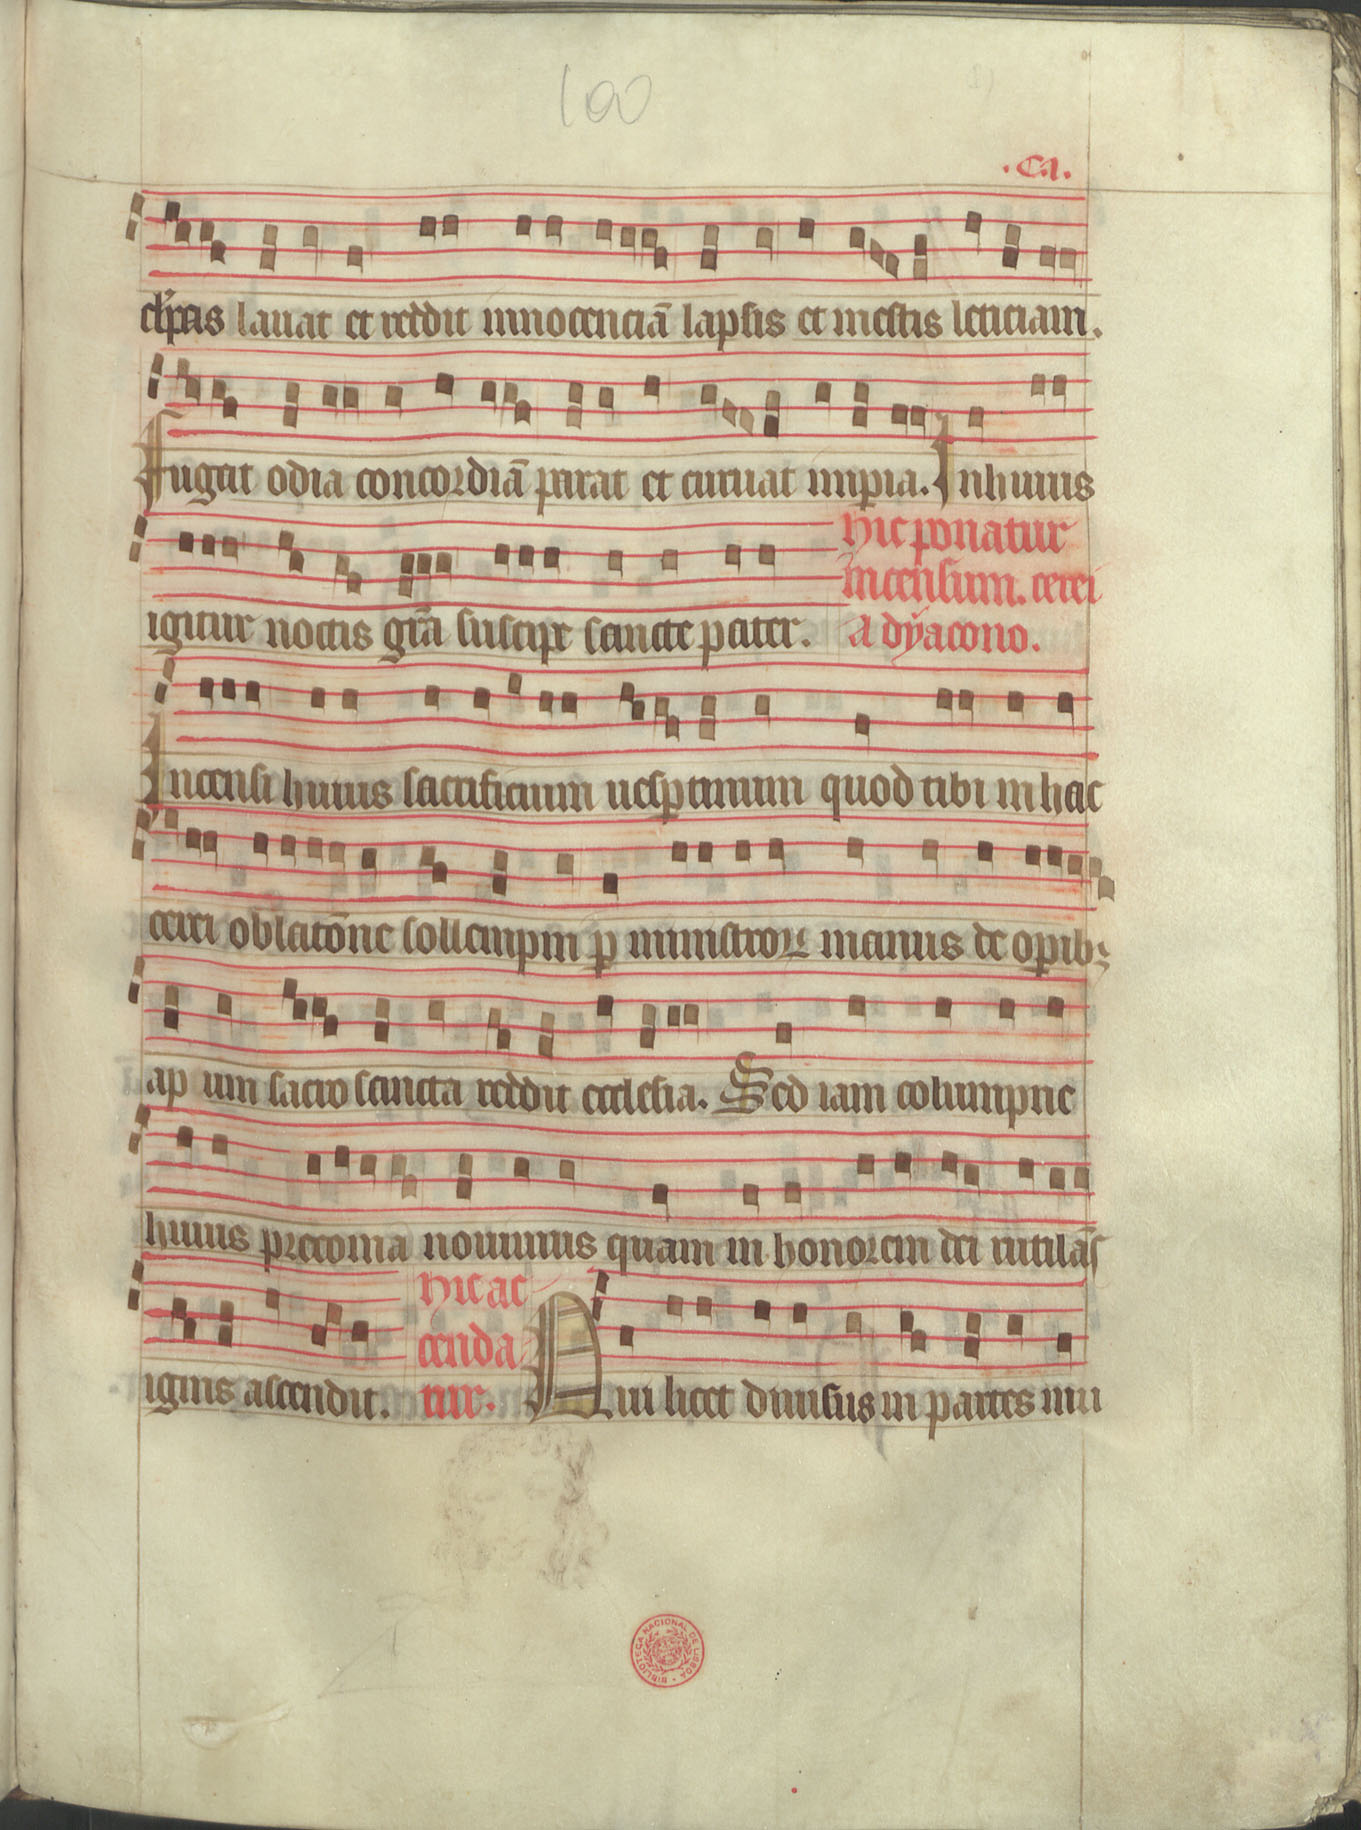 100
.CI.
cl'pas lauat et reddit innocenciā lapsis et mestis leticiam.
Fugat odia concordiā parat et curuat imperia. In huius
igitur noctis grā suscipe sancte pater. Hic ponatur
incensum. cerei
a dyacono.
Incensi huius sacrificium uesptinum quod tibi in hac
cerei oblatōne sollempni p ministroꝝ manus de opibꝫ
ap um sacro sancta reddit ecclesia. Sed iam columpne
huius preconia nouimus quam in honorem dei rutilās
ignis ascendit. Hic ac
cenda
tur. Qui licet diuisus in partes mu
BIBLIOTECA NACIONAL DE LISBOA